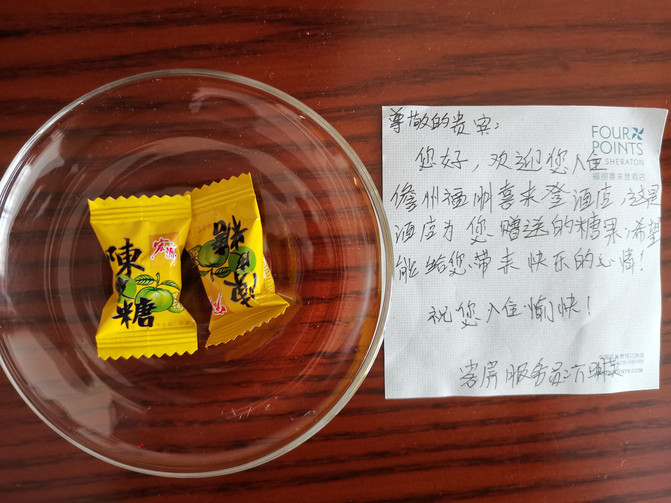 宏源
陳
糖
尊敬的贵宾：
FOUR
POINTS
BY SHERATON
福朋喜来登酒店
您好，欢迎您入住
儋州福朋喜来登酒店，这是
酒店为您赠送的糖果，希望
能给您带来快乐的心情！
祝您入住愉快！
客房服务员：